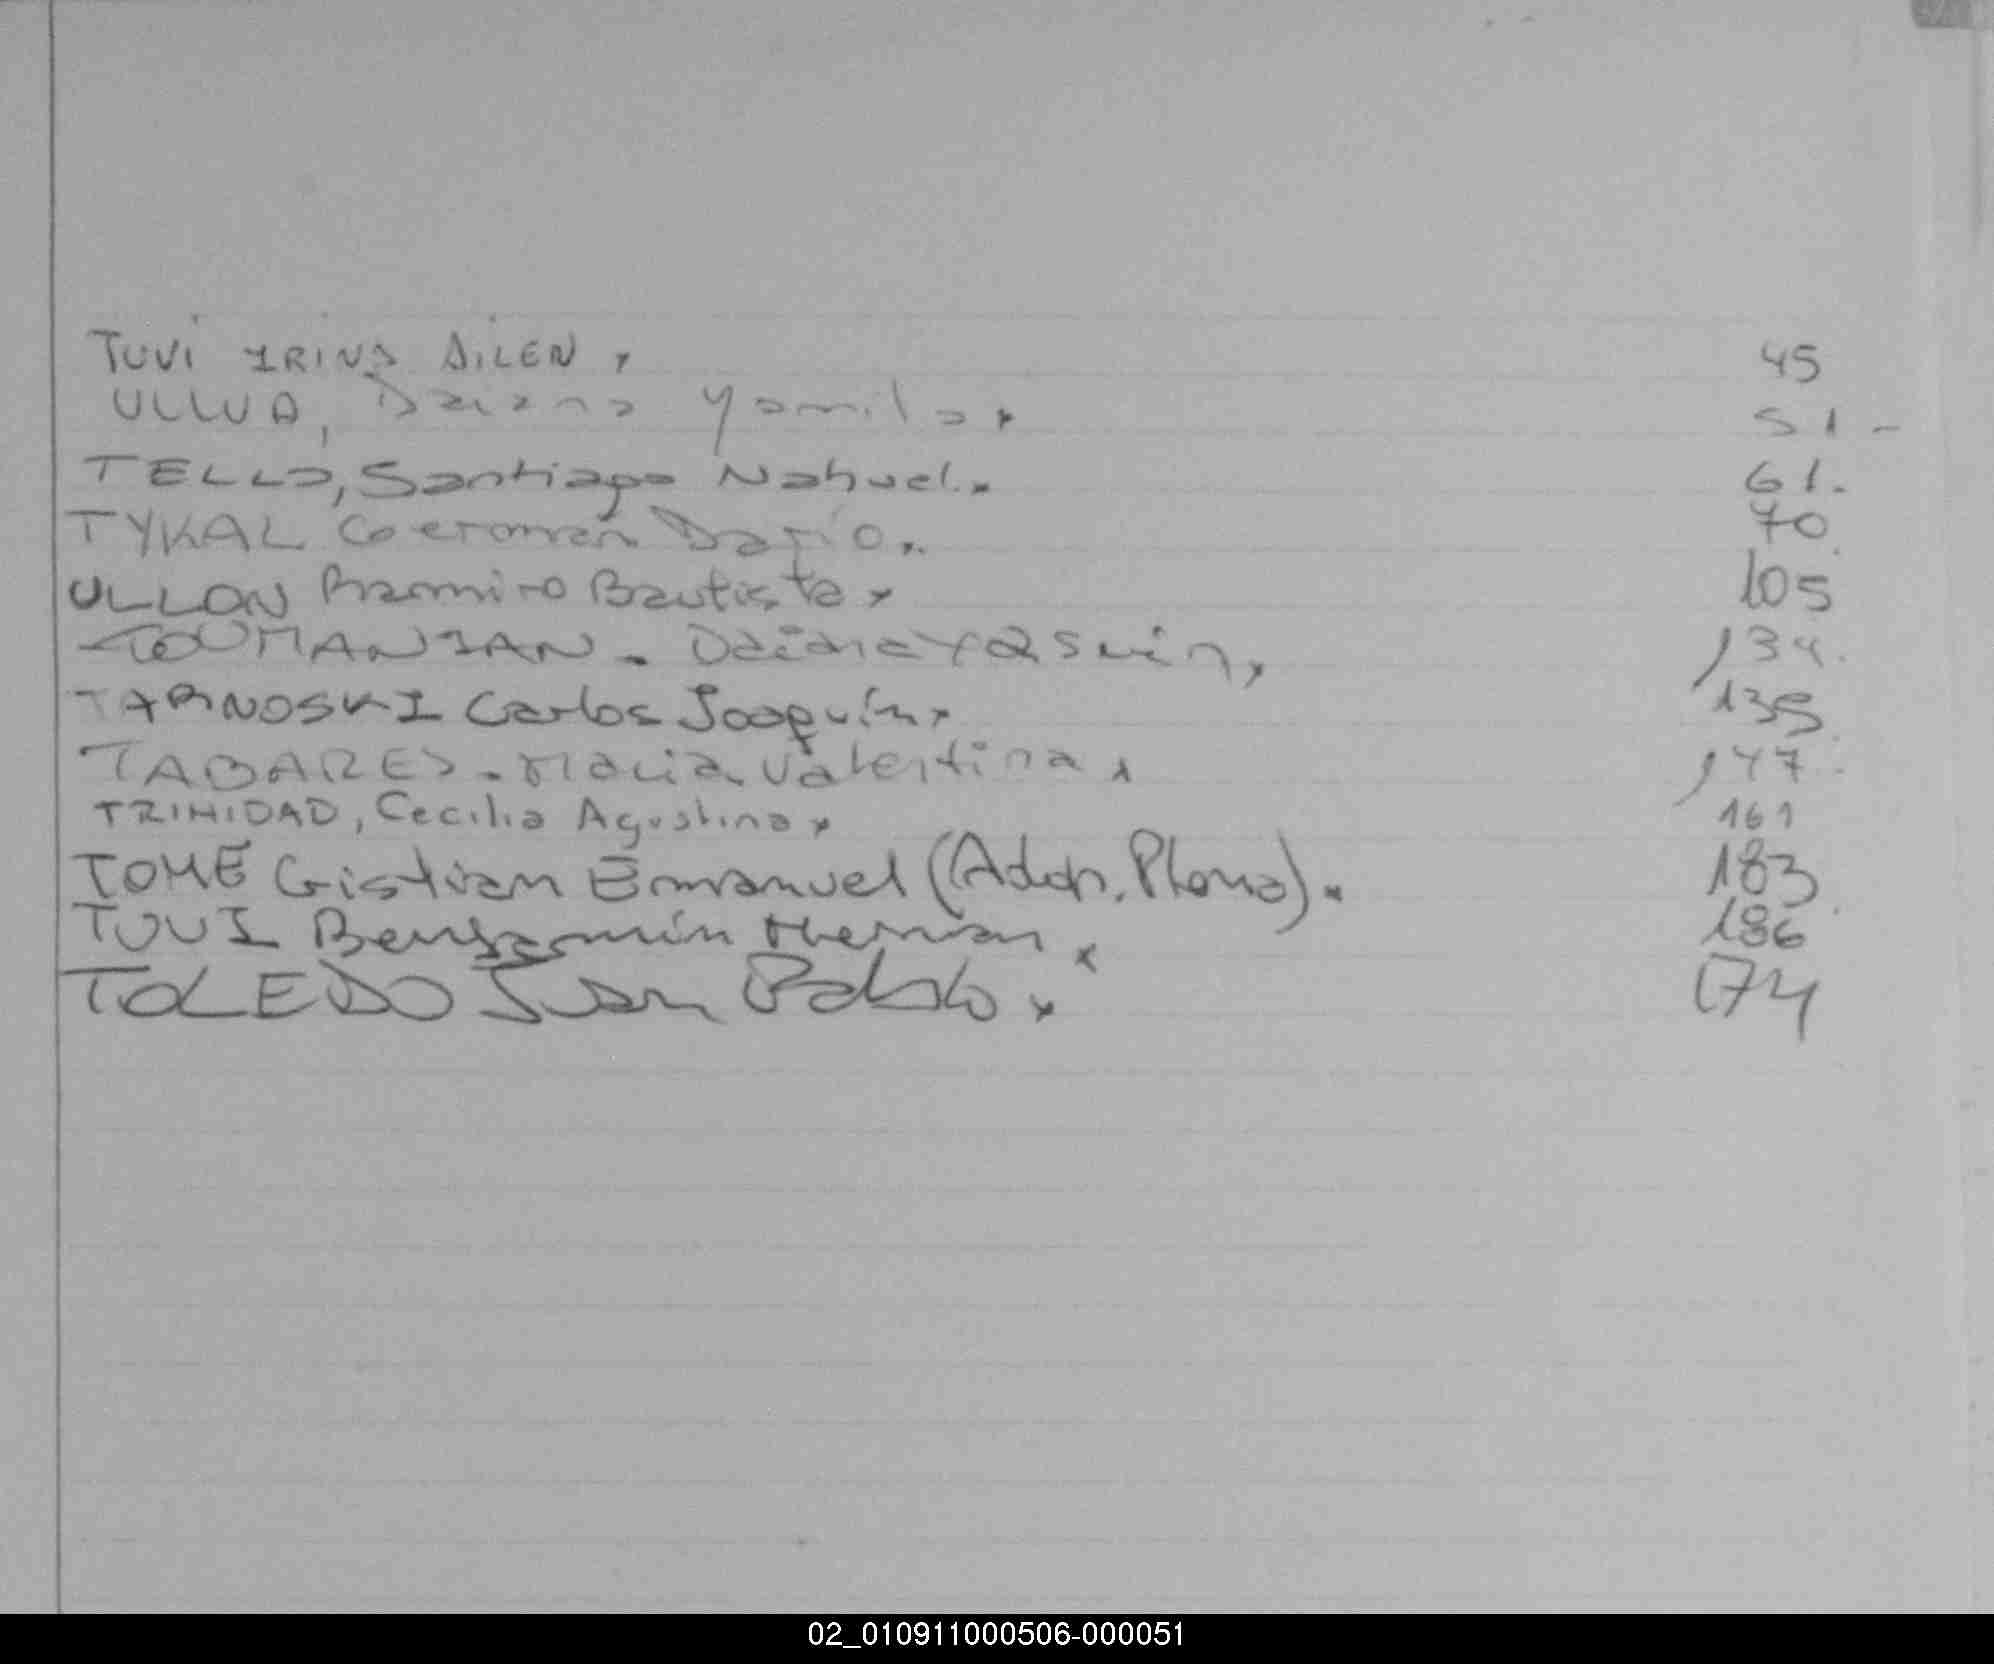 TUVI IRINA AILEN x 45
ULLUA, Daiana Yamila x 51 -
TELLO, Santiago Nahuel. x 61.
TYKAL German Dario x. 70
ULLON Ramiro Bautista x 105
TOUMANIAN - Daiana Yasmin, x 134.
TARNOSKI Carlos Joaquín x 135
TABARES - Maria Valentina x 147
TRINIDAD, Cecilia Agustina x 161
TOME Cristian Emanuel (Adop. Plena). x 183
TUVI Benjamín Hernan x 186
TOLEDO Juan Pablo x 174
02_010911000506-000051